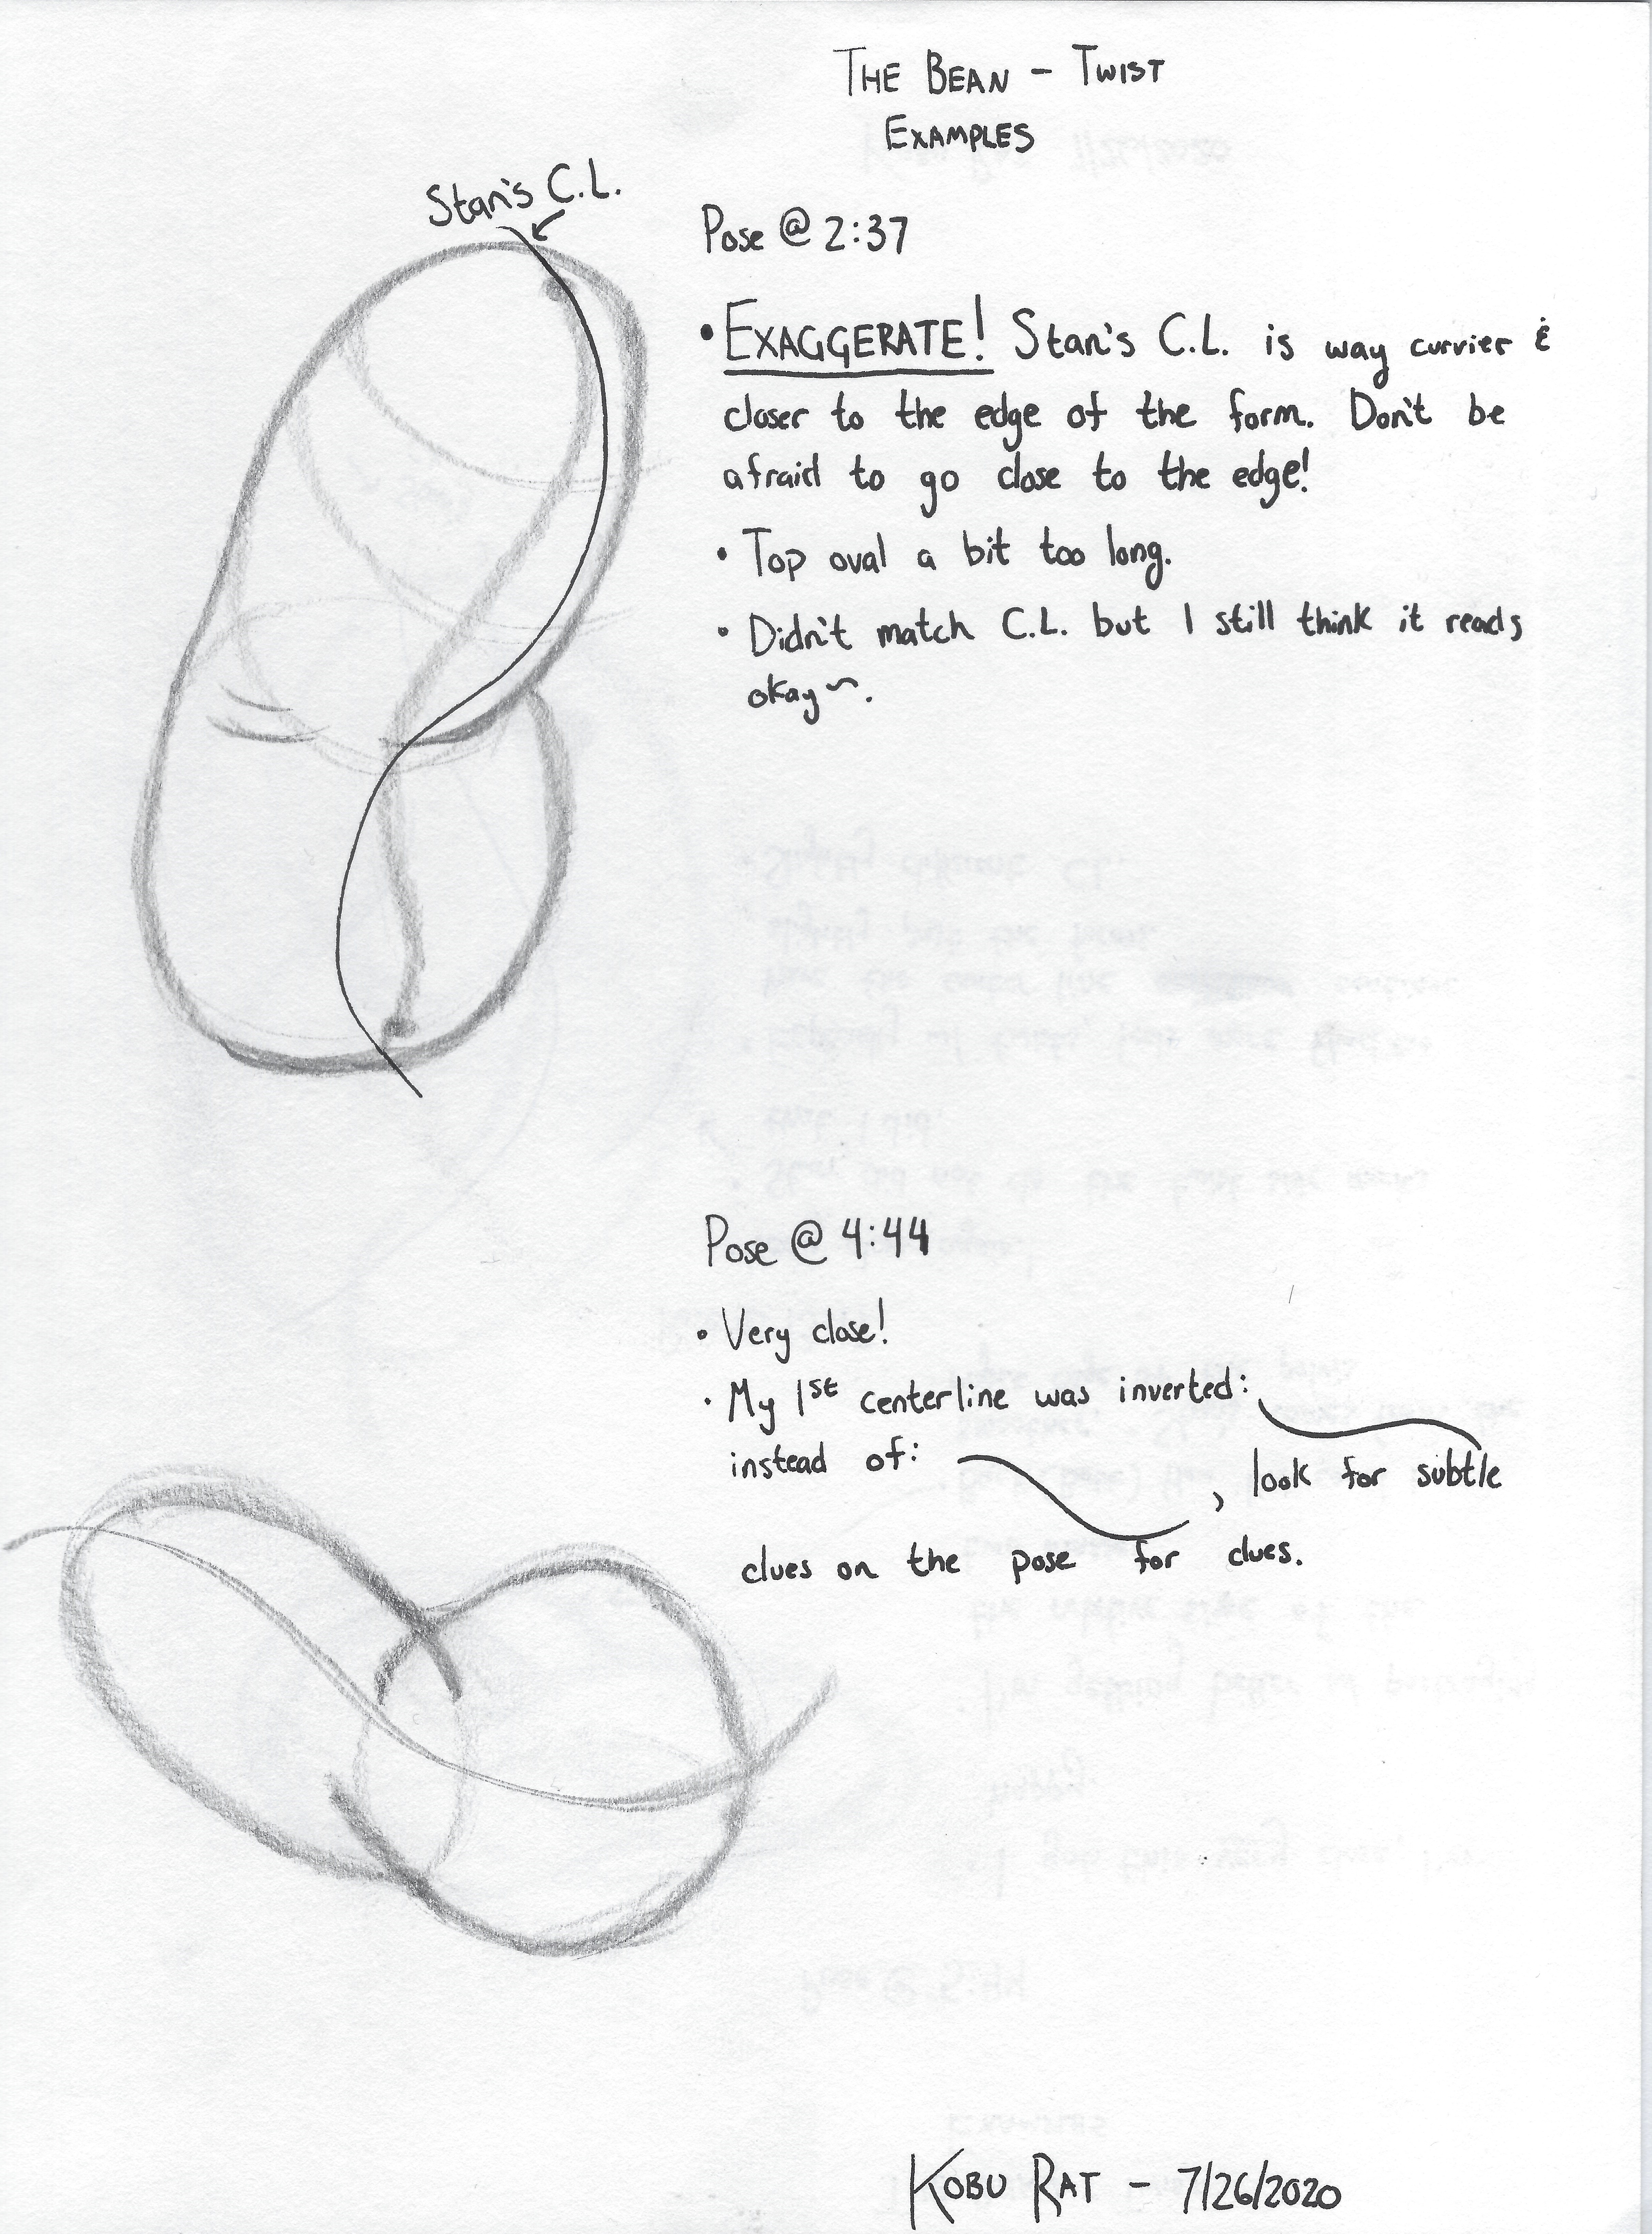 THE BEAN - TWIST
EXAMPLES
Stan's C.L.
Pose @ 2:37
• EXAGGERATE! Stan's C.L. is way curvier &
closer to the edge of the form. Don't be
afraid to go close to the edge!
• Top oval a bit too long.
• Didn't match C.L. but I still think it reads
okay~.
Pose @ 4:44
• Very close!
• My 1st centerline was inverted:
instead of: , look for subtle
clues on the pose for clues.
KOBU RAT - 7/26/2020